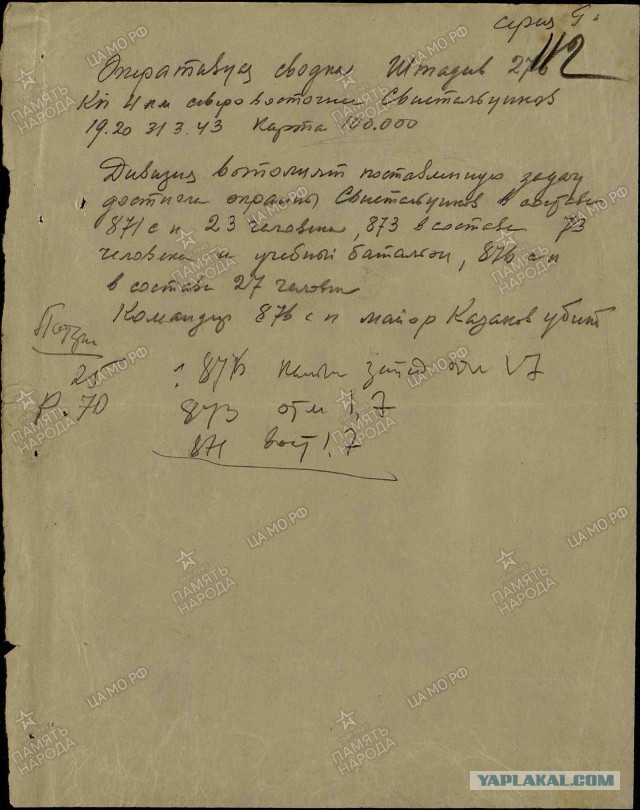 серия Г.
112
Оперативная сводка Штадив 276
Кп 4 км северовосточнее Свистельников
19.20 31 3.43 Карта 100.000
Дивизия выполняя поставленную задачу
достигла окраины Свистельников в составе
871 сп 23 человека, 873 в составе 73
человека и учебный батальон, 876 сп
в составе 27 человек
Командир 876 сп майор Казаков убит
Потери
25 876 запад отм 1,7
Р. 70 873 отм 1,7
871 вост 1,7
ЦАМО РФ
ПАМЯТЬ НАРОДА
YAPLAKAL.COM